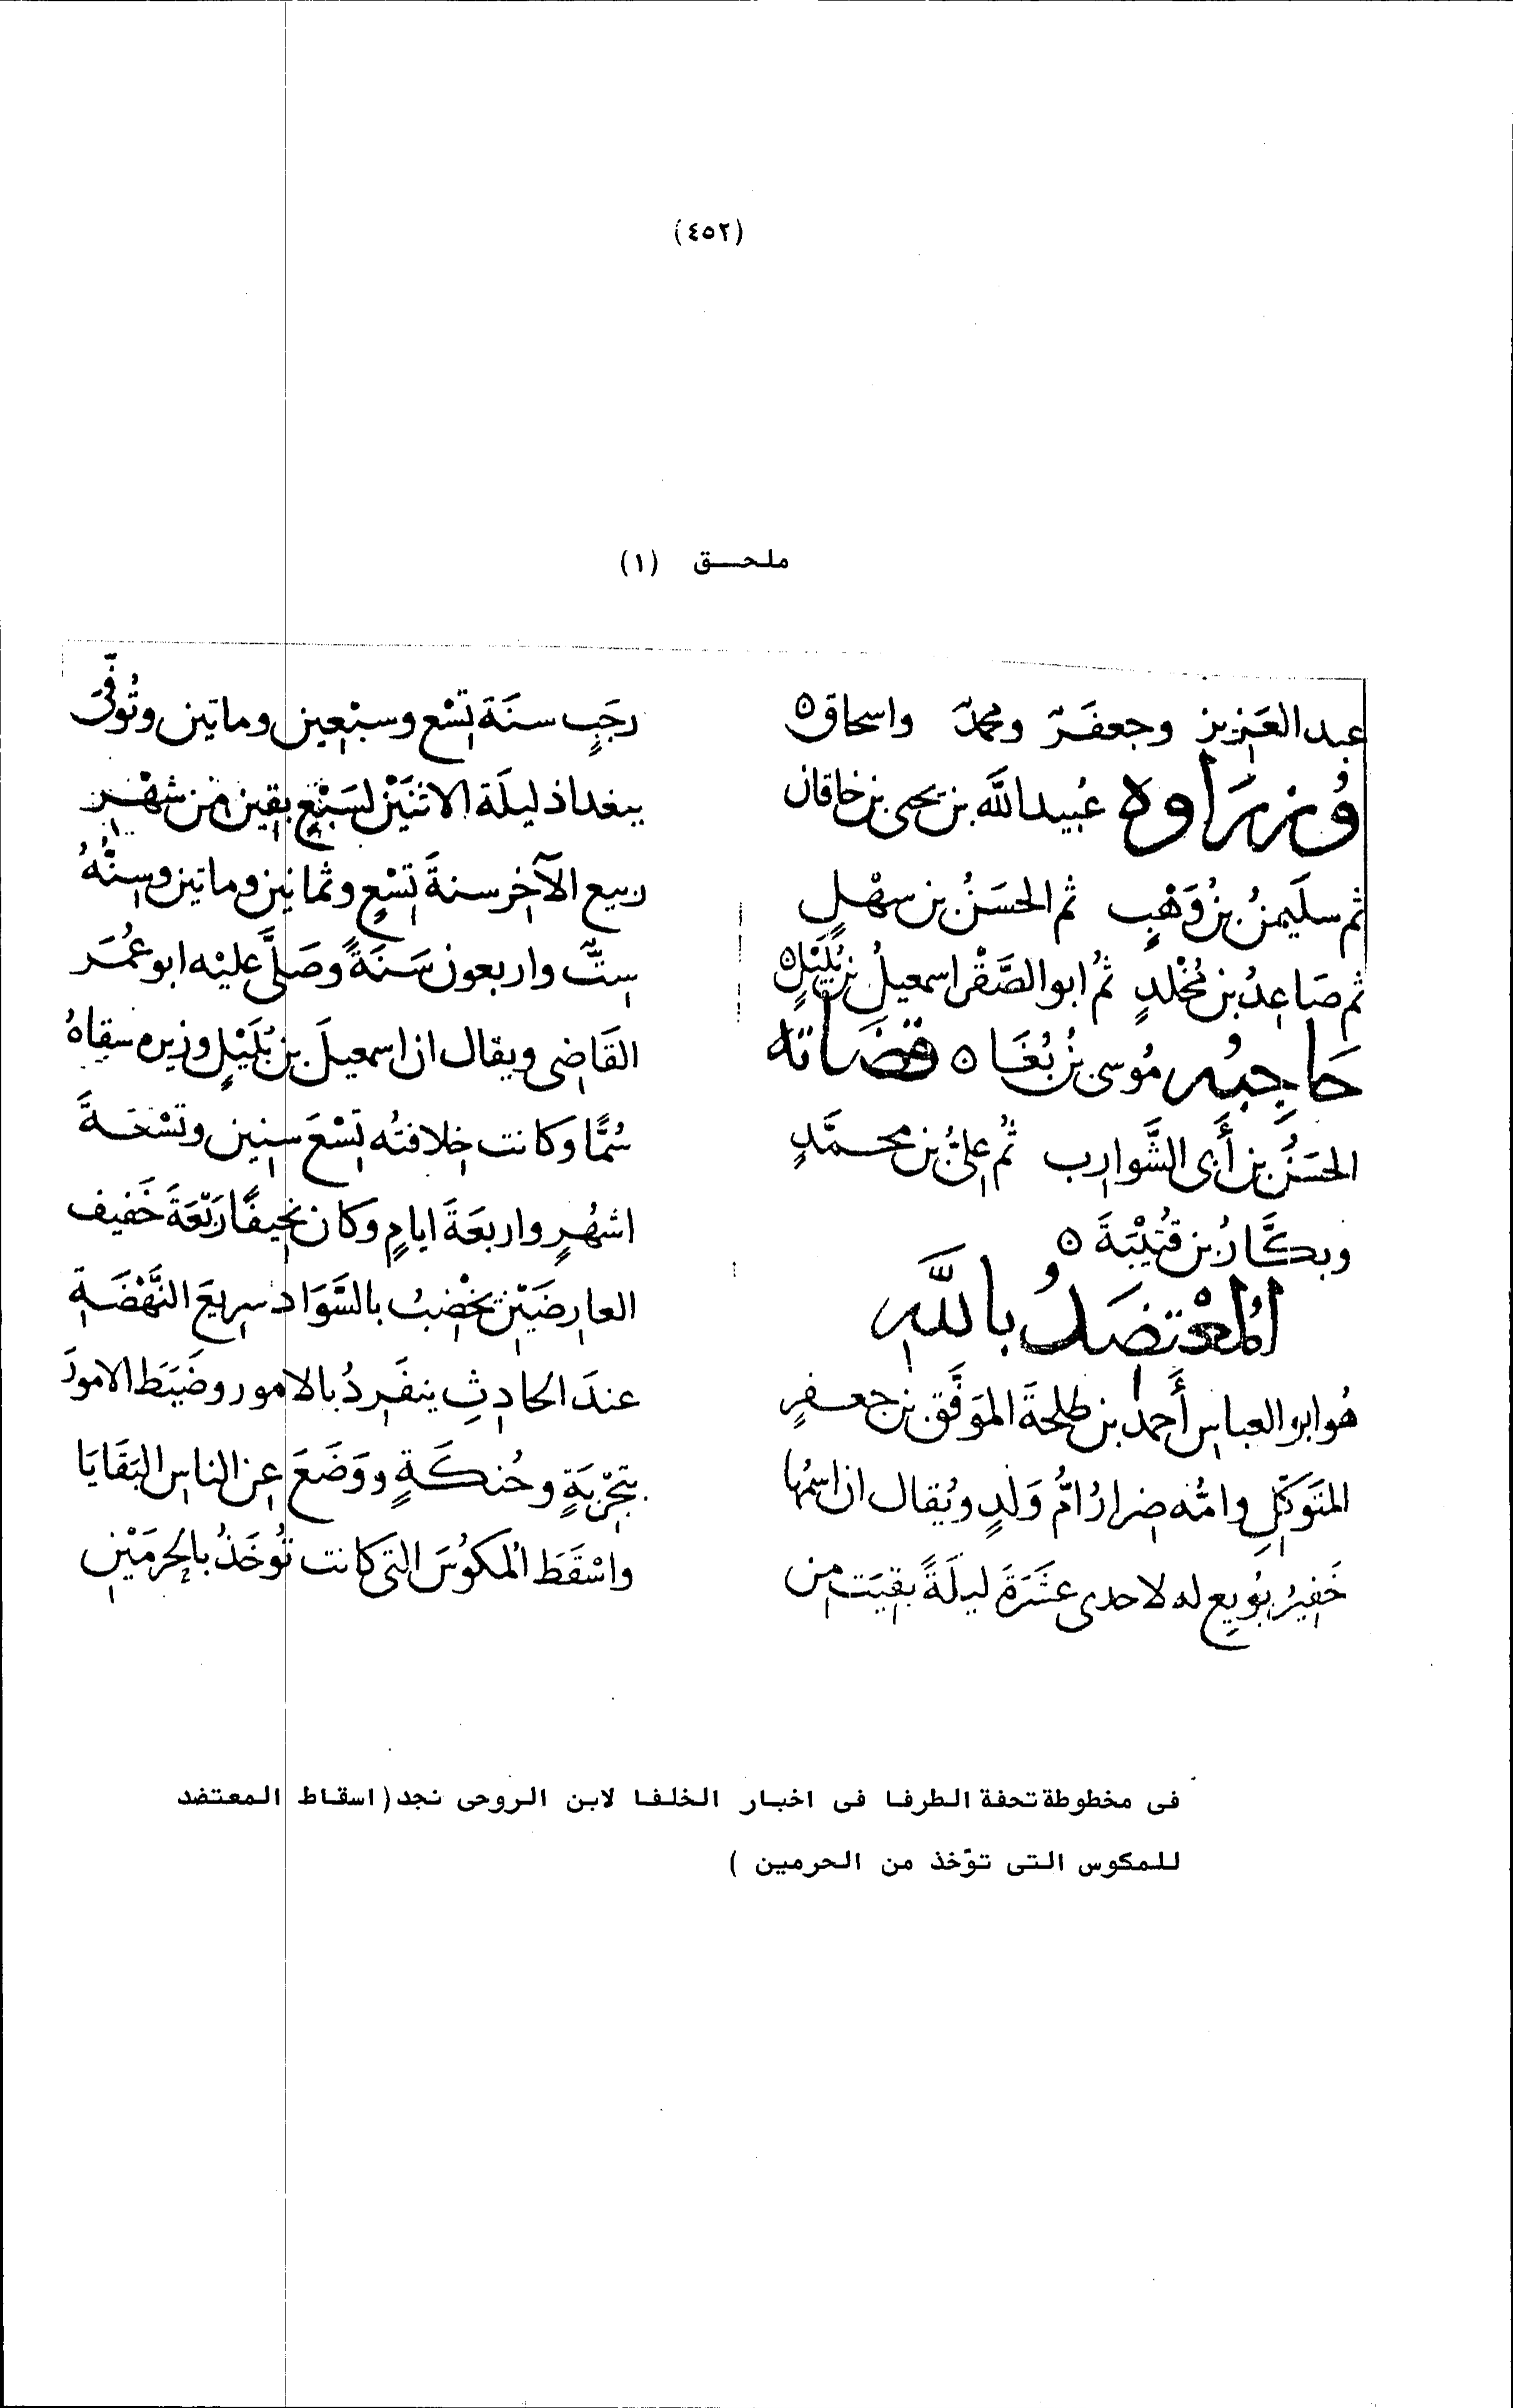 (٤٥٢)
ملحـــق (١)
عبد العَزِيز وجعفَرٌ ومحمدٌ واسحاق ه
وُزَرَاوه عُبيد الله بن يحيى بن خاقان
ثم سلَيمنُ بنُ وَهْبٍ ثم الحسَنُ بن سهْلٍ
ثم صَاعِدُ بن مُخْلدٍ ثمُ ابو الصَّقْر اسمعيلُ بن بُلَبْلٍ ه
حَاجِبُه مُوسى بنُ بُغَا ه قضَاته
الحسَنُ بن أَبى الشَّوارِب ثُم علىُّ بن محمَّدٍ
وبكَّارُ بن قُتَيْبَةَ ه
المُعْتضَدُ بالله
هُو ابو العباس أَحمدُ بن طلحةَ الموَفَّق بن جعفرٍ
المتَوَكِّلِ وامُّه ضِرارُ امُّ وَلدٍ ويُقال ان اسمُها
خَفِيرُ بُويِع له لاحدى عشَرَةَ ليلَةً بقيَت من
رجَبٍ سنَةَ تسْع وسبْعِين وماتين وتُوفِّىَ
ببغداذ ليلَة الاثنَيْن لسَبْعٍ بقِين من شهْرِ
ربيع الآخِر سنةَ تسْعٍ وثمانين وماتين وسِنُّهُ
ستٌّ واربعون سَنَةً وصَلَّى عليْه ابو عُمَر
القَاضِى ويقال ان اسمعيلَ بن بُلَبْلٍ وزيره سَقاهُ
سُمًّا وكانت خِلافتُه تسْعَ سنِين وتسْعَةَ
اشهُرٍ واربعَةَ ايامٍ وكان نحِيفًا رَبْعَةَ خَفيف
العارِضَيْن يخْضبُ بالسَّوَاد سرِيعَ النَّهْضَةِ
عندَ الحادِثِ ينفَرِدُ بالامور وضَبَط الامورَ
بتجْرِبَةٍ وحُنكَةٍ ووَضَعَ عن الناس البَقَايَا
واسْقَطَ المكوُسَ التى كانت تُوخَذُ بالحرمَيْن
فى مخطوطة تحفة الظرفا فى اخبار الخلفا لابن الروحى نجد (اسقاط المعتضد
للمكوس التى تؤخذ من الحرمين )